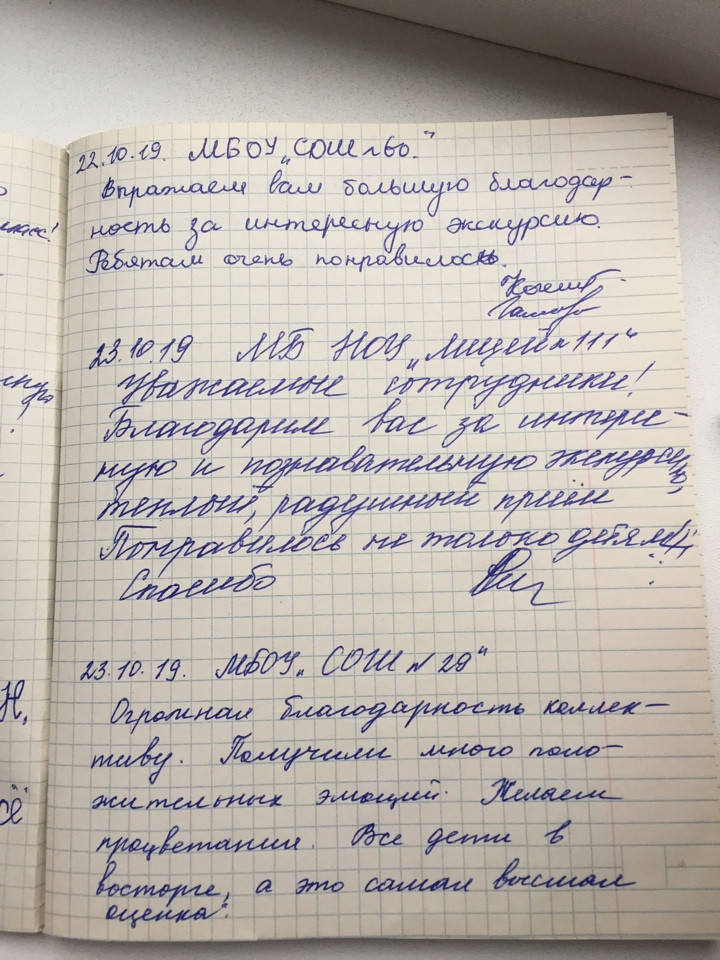 22.10.19. МБОУ „СОШ №60."
Выражаем вам большую благодар-
ность за интересную экскурсию.
Ребятам очень понравилось.
23.10.19 МБ НОУ „Лицей №111"
Уважаемые сотрудники!
Благодарим вас за интерес-
ную и познавательную экскурсию,
теплый, радушный приём
Понравилось не только детям!
Спасибо
23.10.19. МБОУ „СОШ №29"
Огромная благодарность коллек-
тиву. Получили много поло-
жительных эмоций. Желаем
процветания. Все дети в
восторге, а это самая высшая
оценка".